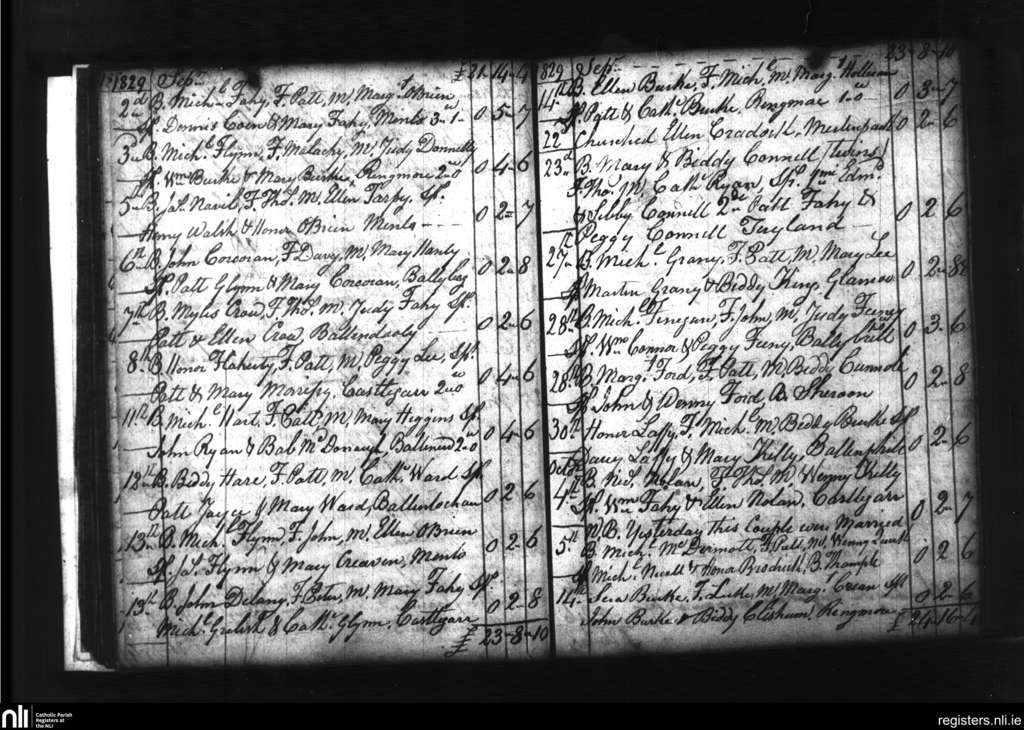 1829 Sepr £ 21-14-4
2d B. Michl Fahy, F. Patt, M, Margt OBrien
Sp. Dennis Coen & Mary Fahy, Menlo 3-1- 0 5-7
3rd B. Michl Flynn, F. Malachy, M, Judy Donnelly
Sp. Wm Burke & Mary Burke, Ringmore 2-0 0 4-6
5th B. Jas Navil, F. Ths. M. Ellen Tarpy. Sp.
Henry Walsh & Honor OBrien Menlo 0 2-7
6th B. John Corcoran, F. Davy, M, Mary Hanly
Sp. Patt Glynn & Mary Corcoran, Ballybeg 0 2-8
7th B. Myles Crow, F. Ths. M, Judy Fahy Sp.
Patt & Ellen Crow, Ballindooly 0 2-6
8th B. Honor Flaherty, F. Patt, M, Peggy Lee, Sp.
Patt & Mary Morrissy, Castlegarr 2-0 0 4-6
11th B. Michl Hart, F. Patt, M, Mary Higgins Sp
John Ryan & Bab McDonaugh, 2-0 0 4-6
13th B. Biddy Hare, F. Patt, M, Cath. Ward Sp
Patt Joyce & Mary Ward, Ballinlochan 0 2-6
13th B. Michl Flynn F. John, M, Ellen OBrien
Sp. Jas. Flynn & Mary Creaven, Menlo 0 2-6
13th B. John Delany, F. Peter, M, Mary Fahy Sp.
Michl Grelish & Cath. Glynn. Castlegarr 0 2-8
£ 23-8-10
829 Sepr 23-8-10
14th B. Ellen Burke, F. Michl M, Margt Holleran
Sp. Patt & Cath. Burke. Ringmore 1-0 0 3-7
22 Churched Ellen Cradock, Merlinpark 0 2-6
23d B. Mary & Biddy Connell (twins)
F. Tho. M, Cath. Ryan, Sp. Edmd
& Sibby Connell 2d Patt Fahy &
Peggy Connell Tuyland 0 2 6
27th B. Michl Grany, F. Patt, M, Mary Lee
Sp. Martin Grany & Biddy King, Glanco 0 2-8
28th B. Michl Finegan, F. John, M, Judy Feeny
Sp. Wm Connor & Peggy Feeny, Ballybritt 0 3-6
28th B. Margt Ford, F. Patt, M, Biddy
Sp John & Wenny Ford B. Sheroon 0 2-8
30th Honor Laffy, F. Michl M. Biddy Burke Sp
Davy Laffy & Mary Skelly, 0 2-6
Octr B. Nic. Nolan, F. Tho. M, Wenny Skelly
4th Sp. Wm Fahy & Ellen Nolan, Castlegarr 0 2-7
N.B. Yesterday this Couple were Married
5th B. Michl McDermott, F. Patt, M, Wenny
Sp Michl & Honor Brodrick, B. 0 2 6
14th Burke, F. Luke, M, Margt Crean Sp
John Burke & Biddy Ringmore 0 2-6
£ 24-16-4
nli
Catholic Parish
Registers at
the NLI
registers.nli.ie